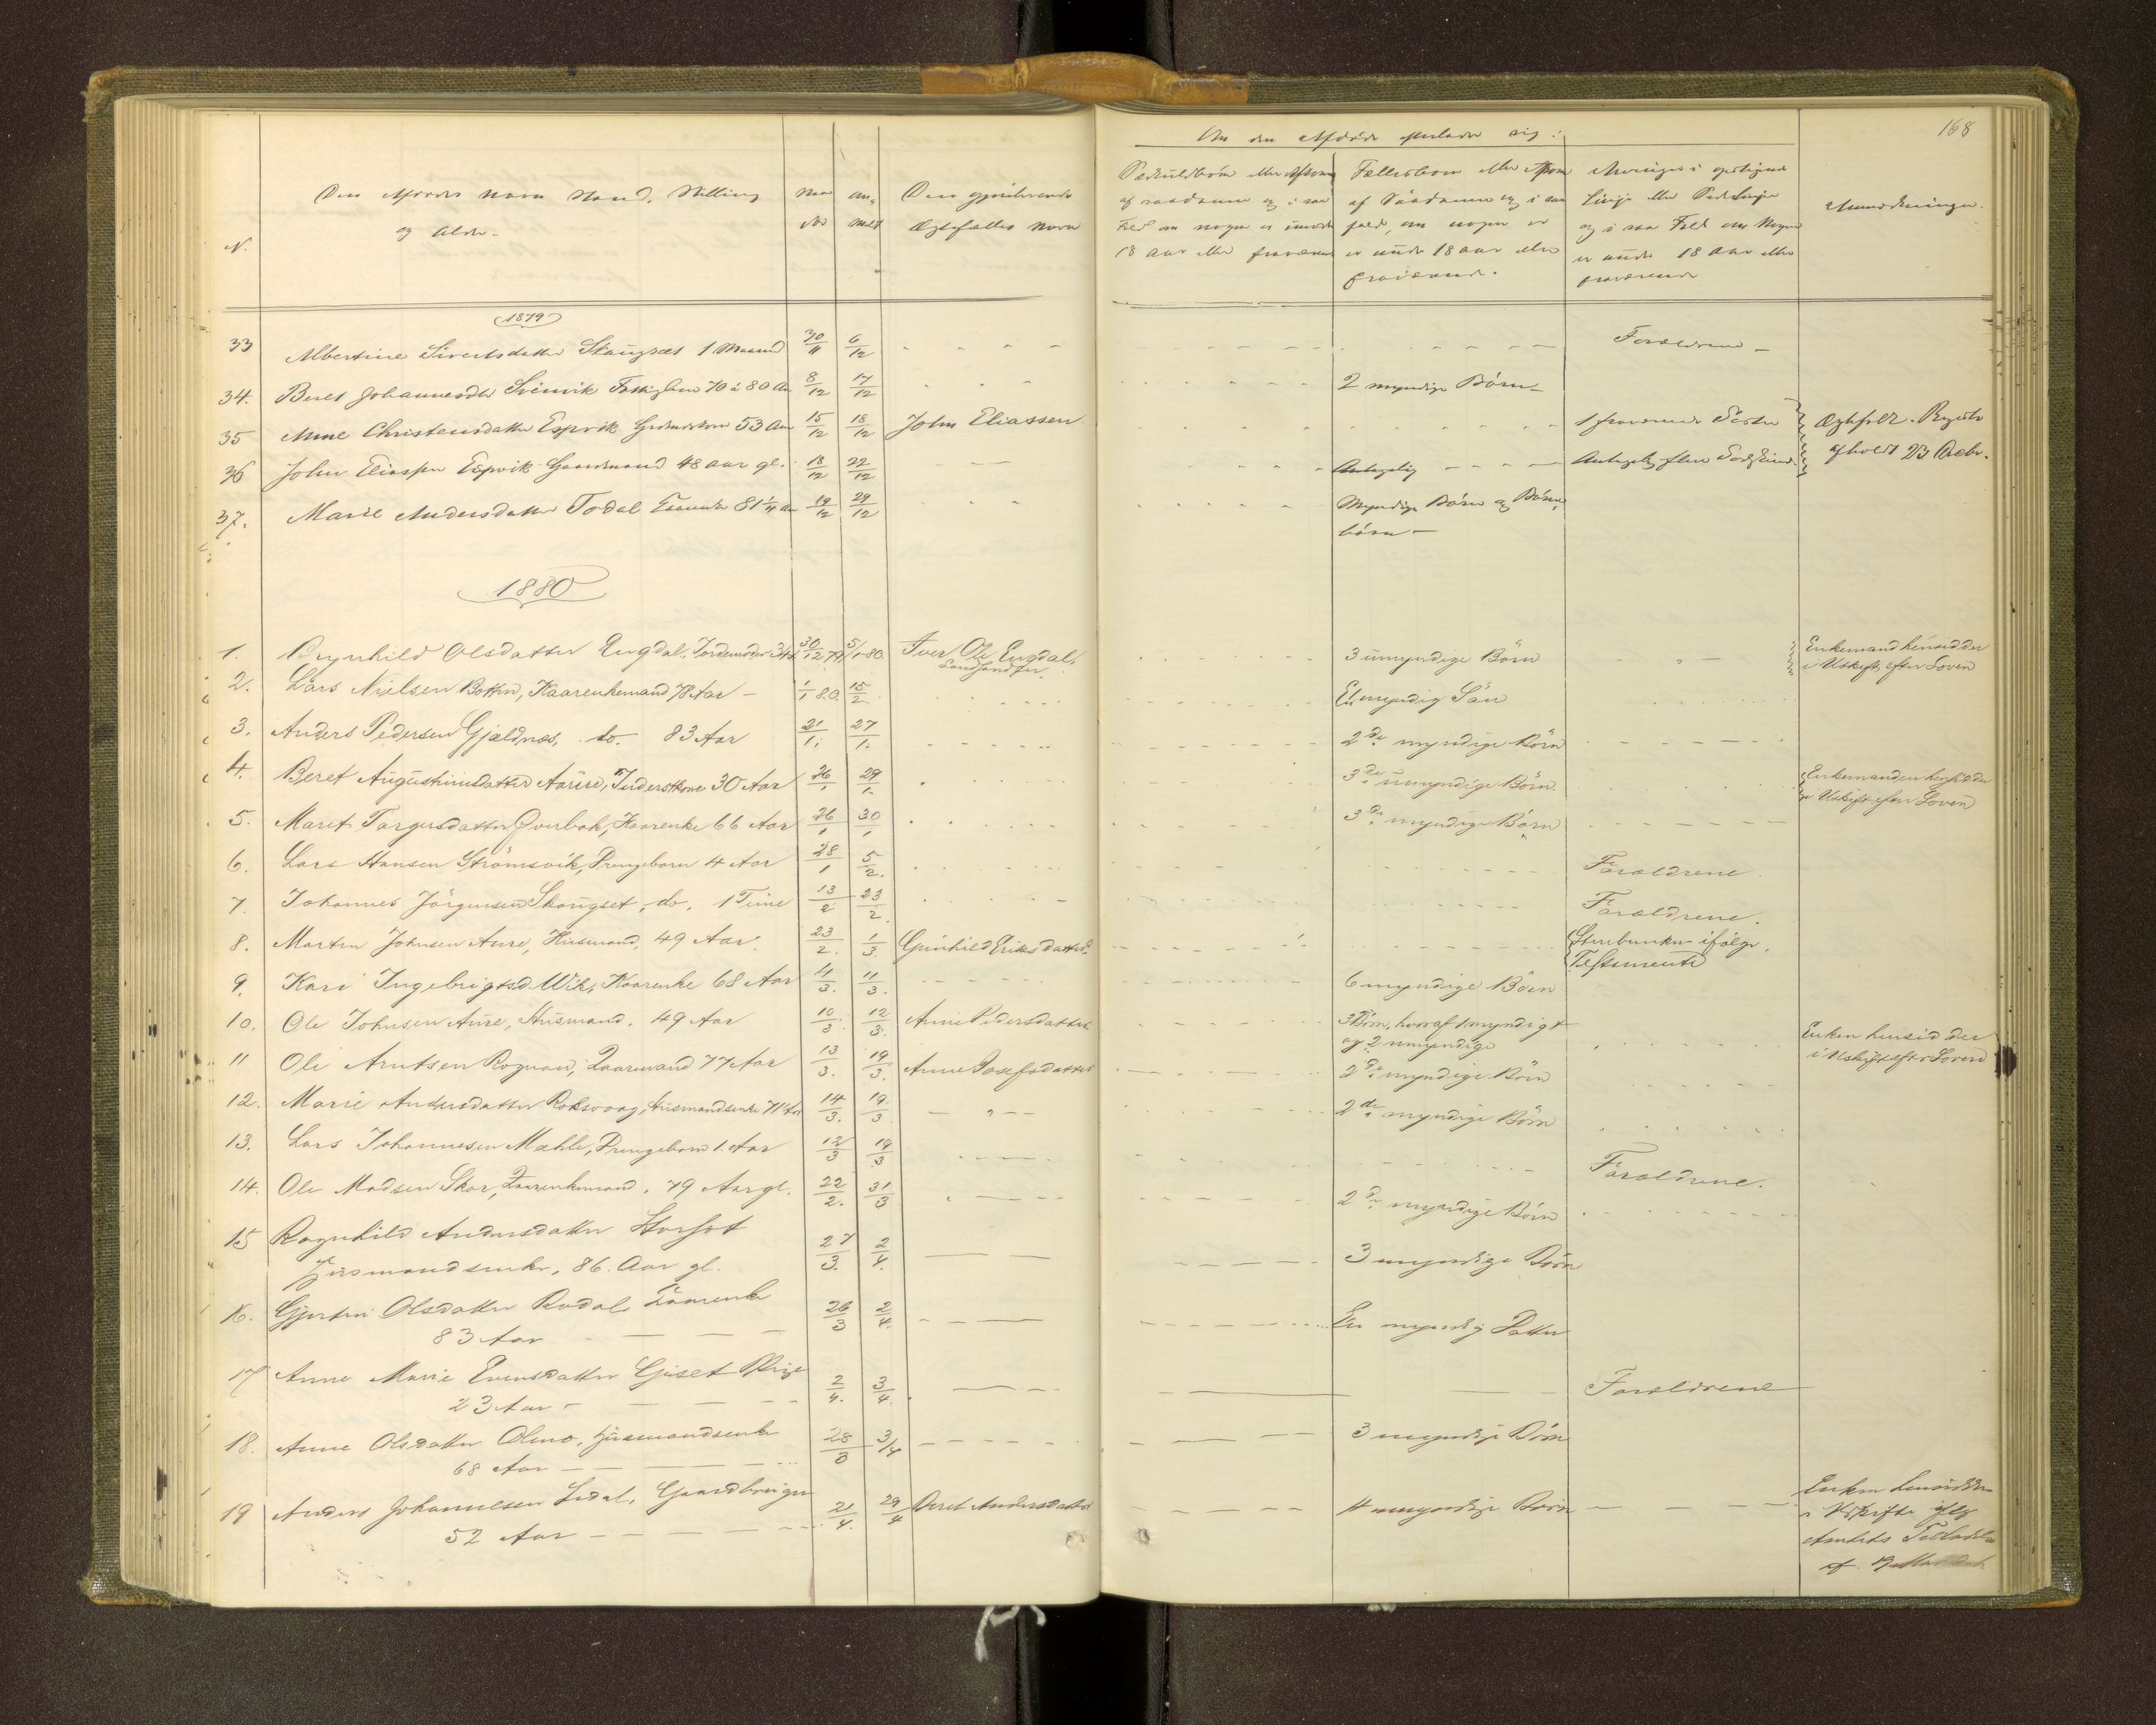 168
Om den Afdøde efterlader sig:
N.
Den Afdødes Navn Stand, Stilling
og Alder.
Naar
død
an-
meldt
Den gjenlevende
Ægtefælles Navn
Særkuldbörn eller Afkom
af saadanne og i saa
Fald om nogen er under
18 Aar eller fraværende
Fællesbörn eller Afkom
af Saadanne og i saa
fald, om nogen er
er under 18 aar eller
fraværende.
Arvinger i opstigende
Linje eller Sidelinje
og i saa Fald om Nogen
er under 18 Aar eller
fraværende
Anmærkninger.
1879
33 Albertine Sivertsdatter Skaugset 1 Maaned 30/11 6/12 Forældrene
34. Beret Johannesdtr Svinvik Fattiglem 70 à 80 Aar 8/12 17/12 2 myndige Börn
35 Anne Christensdatter Espvik Gardmandskone 53 Aar 15/12 18/12 John Eliassen 1 fraværende Søster Ægtefolk. Registr
36 John Eliassen Espvik Gaardmand 48 aar gl. 18/12 22/12 Antagelig Antagelig flere Sødskind afholdt 23 Decbr.
37. Marie Andersdatter Todal Kaarenke 81 1/4 Aar 19/12 29/12 Myndige Börn og Börne-
börn
1880
1. Brynhild Olsdatter Engdal, Jordemoder 34 30/12 79 5/1 80 Iver Ols. Engdal, 3 umyndige Börn Enkemand hensidder
Landhandler. i Uskifte efter Loven
2. Lars Nielsen Botten, Kaarenkemand 78 Aar 1/1 80. 15/2 En myndig Sön
3. Anders Pedersen Gjeldnæs, do. 83 Aar 21/1. 27/1. 2de myndige Börn
4. Beret Augustinusdatter Aarire, Inderstkone 30 Aar 26/1 29/1. 3de umyndige Börn Enkemanden hensidder
i Uskifte efter Loven
5. Marit Torgersdatter Qverbak, Kaarenke 66 Aar 26/1 30/1 3de myndige Börn
6. Lars Hansen Strömsvik, Drengebarn 4 Aar 28/1 5/2. Forældrene
7. Johannes Jörgensen Skougset, do. 1 Time 13/2 23/2. Forældrene.
8. Morten Johnsen Aure, Husmand, 49 Aar. 23/2. 1/3. Gunhild Eriksdatter Stervbunken ifölge
Testamente
9. Kari Ingebrigtsd. Wik, Kaarenke 68 Aar 4/3. 11/3. 6 myndige Börn
10. Ole Johnsen Aure, Husmand. 49 Aar 10/3. 12/3. Anne Pedersdatter 3 Börn, hvoraf 1 myndigt Enken hensidder
og 2 umyndige i Uskifte efter Loven
11 Ole Arntsen Rognan, Kaarmand 77 Aar 13/3. 19/3. Anne Josefsdatter 2de myndige Börn
12. Marie Andersdatter Roksvaag, Husmandsenke 71 Aar 14/3. 19/3 2de myndige Börn
13. Lars Johannesen Mæhle, Drengebarn 1. Aar 12/3 19/3 Forældrene.
14. Ole Madsen Skar, Kaarenkemand, 79 Aar gl. 22/2. 31/3 2de myndige Börn
15 Ragnhild Andersdatter Storset
Husmandsenke, 86. Aar gl. 27/3. 2/4. 3 myndige Börn
16. Gjertru Olsdatter Rodal Kaarenke
83 Aar 26/3 2/4. En myndig Datter
17 Anne Marie Evensdatter Gjiset Pige
23 Aar 2/4. 3/4. Forældrene
18. Anne Olsdatter Olmo, Husmandsenke
68 Aar 28/3 3/4 3 myndige Börn
19 Anders Johannesen Lidal, Gaardbruger
52 Aar 21/4. 29/4 Beret Andersdatter 4 umyndige Börn Enken hensidder
i Uskifte iflg
Amtets Tilladelse
af 19 Mai